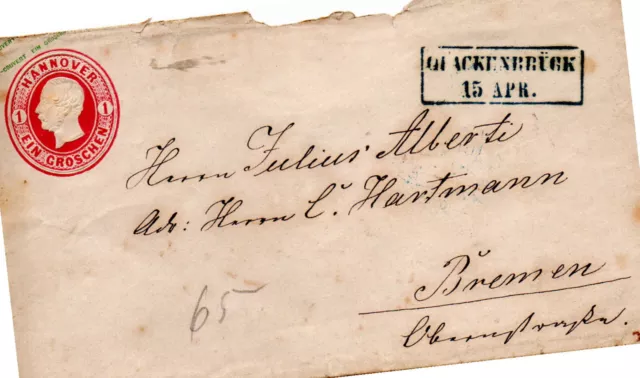 HANNOVER
1 1
EIN GROSCHEN
QUACKENBRÜCK
15 APR.
Herrn Julius Alberti
Adr: Herrn C. Hartmann
Bremen
Obernstraße.
65